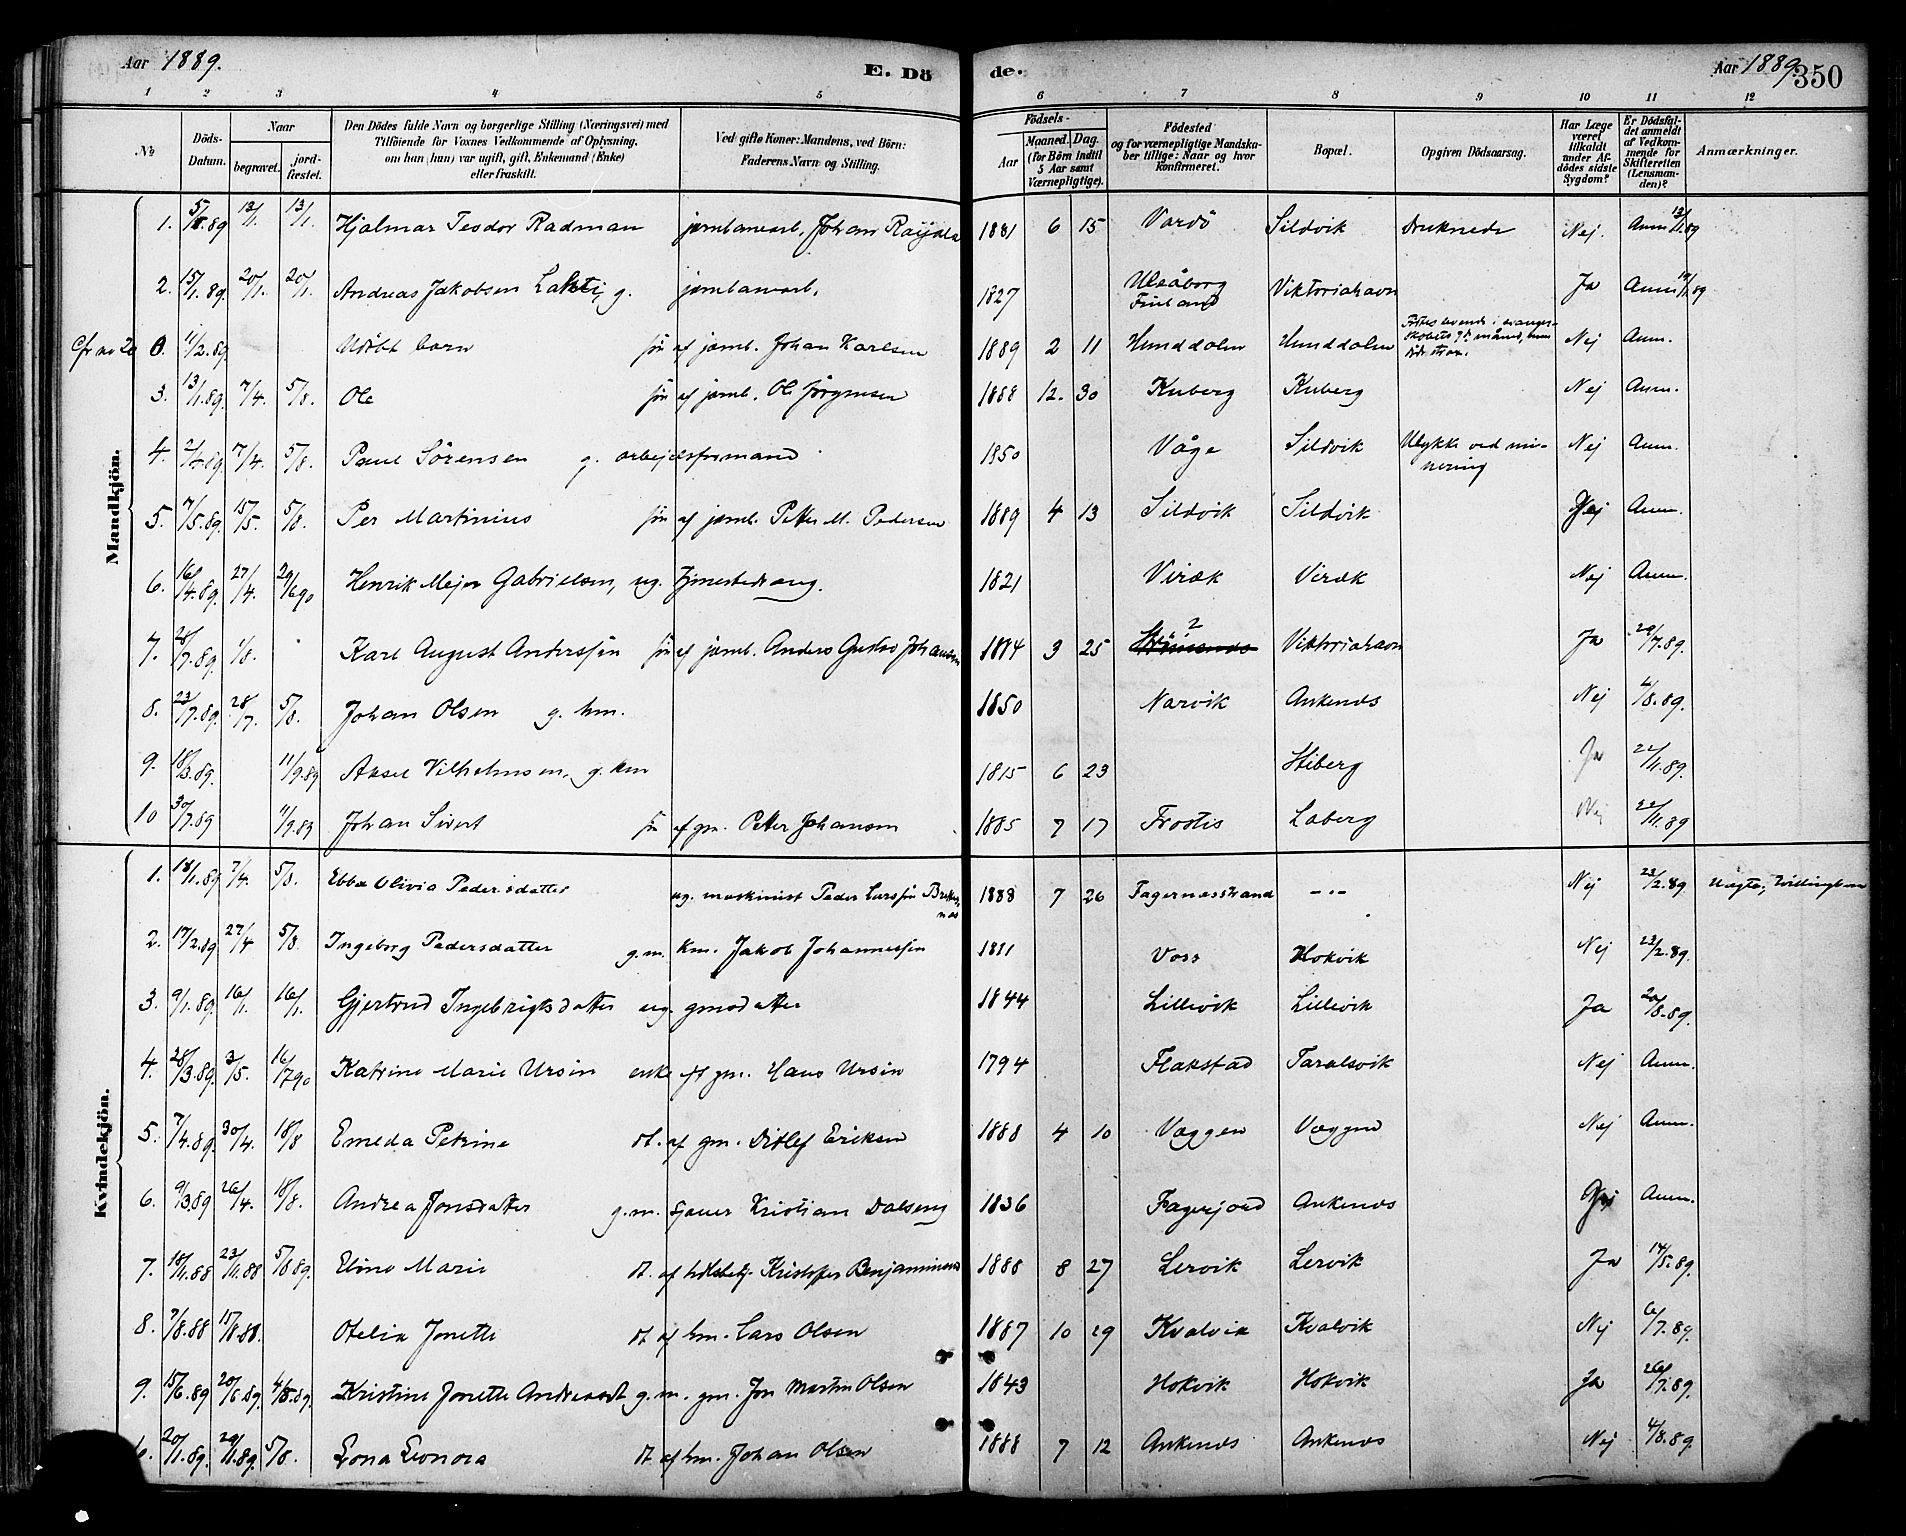 Aar 1889.
E. Dö
de.
Aar 1889.
350
1 2 3 4 5 6 7 8 9 10 11 12
No
Döds-Datum.
Naar
begravet.
jord-fæstet.
Den Dödes fulde Navn og borgerlige Stilling (Næringsvei) med
Tilföiende for Voxnes Vedkommende af Oplysning,
om han (hun) var ugift, gift, Enkemand (Enke)
eller fraskilt.
Ved gifte Koner: Mandens, ved Börn:
Faderens Navn og Stilling.
Födsels-
Aar
Maaned. Dag.
(for Börn indtil
5 Aar samt
Værnepligtige).
Födested
og for værnepligtige Mandska-
ber tillige: Naar og hvor
konfirmeret.
Bopæl.
Opgiven Dödsaarsag.
Har Læge
været
tilkaldt
under Af-
dödes sidste
Sygdom?
Er Dödsfal-
det anmeldt
af Vedkom-
mende for
Skifteretten
(Lensman-
den)?
Anmærkninger.
Mandkjön.
1. 5/1.89 13/1. 13/1. Hjalmar Teodor Radman jernbanearb. Johan 1881 6 15 Vardö Sildvik Druknede Nej. Anm 12/1.89
2. 15/1.89. 20/1. 20/1. Andreas Jakobsen Lahti, g. jernbanearb. 1827 Uleåborg Finland Viktoriahavn Ja Anm 19/1.89
Cfr no 20 0. 11/2.89 Udöbt barn sön af jernb. Johan Karlsen 1889 2 11 Hunddalen Hunddalen Nej Anm.
3. 13/1.89. 7/4. 5/8. Ole sön af jernb. Ole Jörgensen 1888 12. 30 Kuberg Kuberg Nej Anm.
4. 2/4.89. 7/4. 5/8. Paul Sörensen g. arbejdsformand 1850 Våge Sildvik Ulykke ved mi-
nering Nej Anm.
5. 7/5.89. 15/5. 5/8. Per Martinius sön af jernb. Petter M. Pedersen 1889 4 13 Sildvik Sildvik Nej Anm.
6. 16/4.89. 27/4. 29/6 90 Henrik Mejer Gabrielsen, ug. tjenestedreng. 1821 Viræk Viræk Nej Anm.
7. 28/7.89. 1/8. Karl August Anderssön sön af jernb. Anders Gustav Johansen 1884 3 25 ? Viktoriahavn Ja 29/7.89.
8. 23/7.89. 28/7. 5/8. Johan Olsen g. hm. 1850 Narvik Ankenæs Nej 4/8.89.
9. 18/3.89. 11/9.89 Aksel Vilhelmsen, g. km 1815 6 23 Stiberg Ja 22/11.89.
10 30/7.89 11/9.89 Johan Sivert sön af gm. Petter Johansen 1885 7 17 Frostis Laberg Nej 22/11.89
Kvindekjön.
1. 18/1.89 7/4. 5/8. Ebba Olivia Pedersdatter ug. maskinist Peder Larssön 1888 7 26 Fagernesstrand -"- Nej 23/2.89. Uægte; Tvillingbarn
2. 17/2.89 27/4 5/8. Ingeborg Pedersdatter g.m. km. Jakob Johannessön 1811 Voss Hokvik Nej 23/2.89.
3. 9/1.89. 16/1. 16/1. Gjertrud Ingebrigtsdatter ug. gmsdatter 1844 Lillevik Lillevik Ja 20/8.89.
4. 28/3.89. 3/5. 16/7 90 Katrine Marie Ursin enke eft gm. Hans Ursin 1794 Flakstad Taralsvik Nej Anm.
5. 7/4.89. 30/4. 18/8 Emeda Petrine dt. af gm. Ditlef Eriksen 1888 4 10 Væggen Væggen Nej Anm.
6. 9/3.89 26/4. 18/8. Andrea Jonsdatter g.m. Kristian Dalseng 1836 Fagerjord Ankenæs Anm.
7. 18/11.88 23/11.88 5/8 89. Eline Marie dt. af Kristoffer Benjaminsen 1888 8 27 Lervik Lervik Ja 14/5.89.
8. 7/8.88 15/8.88. Otelia Jonette dt af hm. Lars Olsen 1887 10 29 Kvalvik Kvalvik Nej 6/7.89.
9. 15/6.89 20/6.89. 4/8.89. Kristine Jonette Andreasdt g.m. gm. Jon Martin Olsen 1843 Hokvik Hokvik Ja 26/7.89.
20/1.89. 29/1.89. 5/8. Lona Leonora dt af hm. Johan Olsen 1888 7 12 Ankenæs Ankenæs Nej 4/8.89.